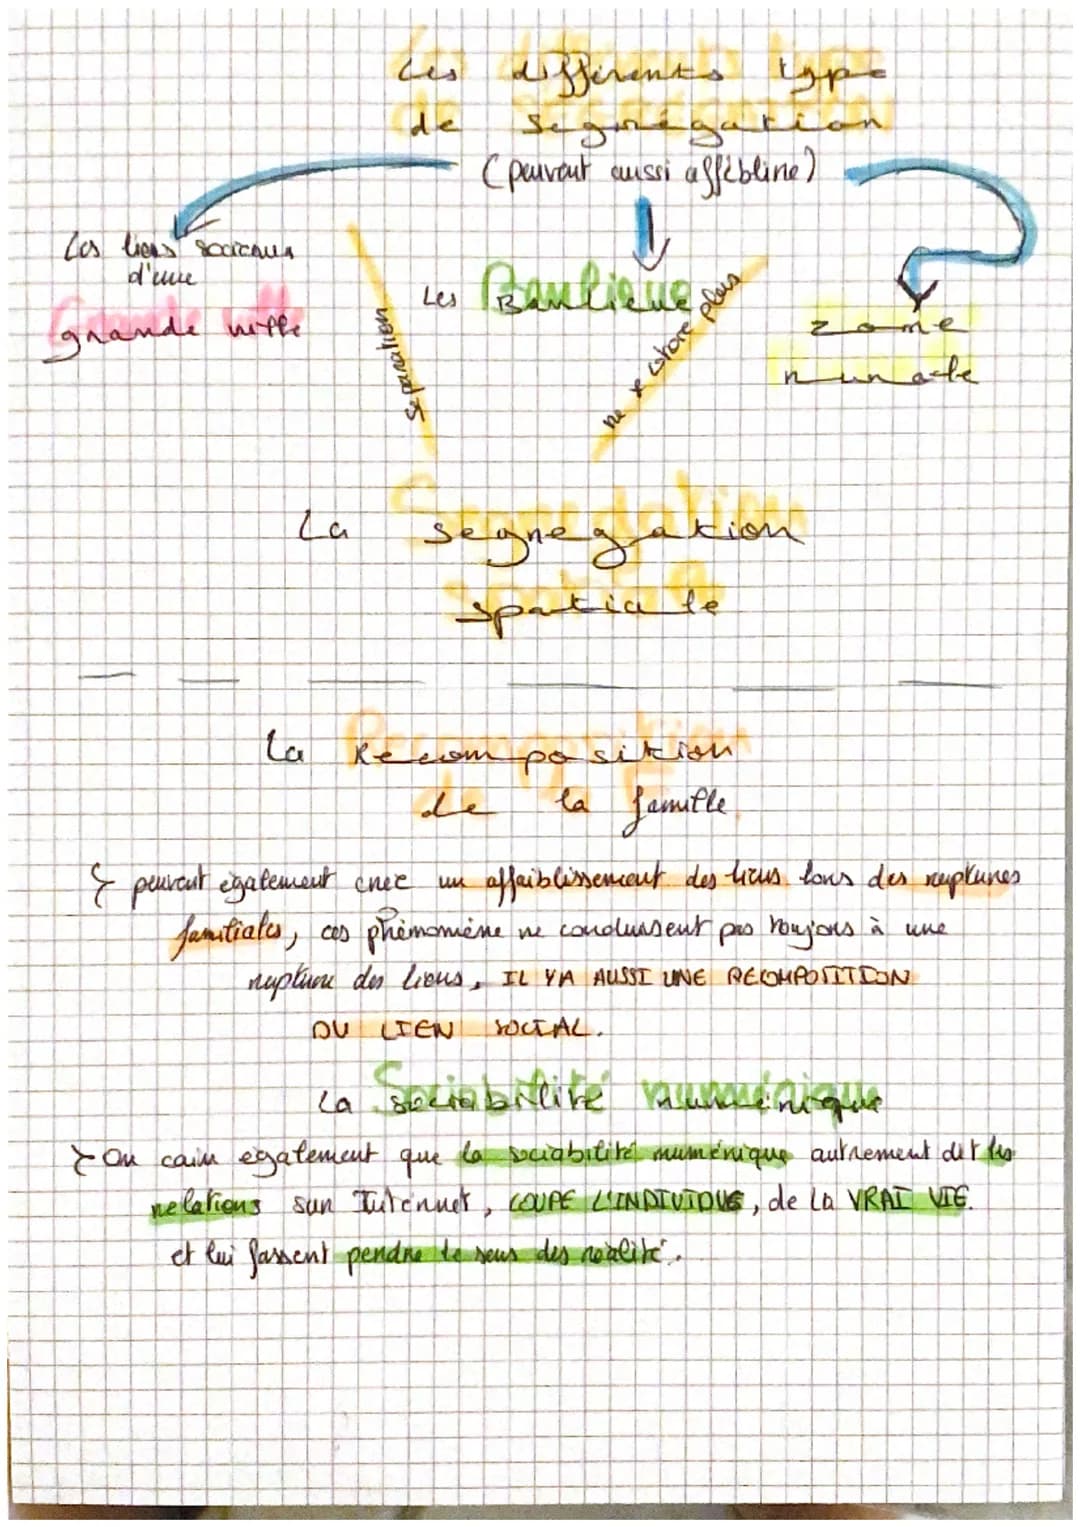 Les différents type
de segrégation
(peuvent aussi affèbline)
Les liens sociaux
d'une
grande ville
Les Banlieue
zone
rurale
séparation
ne + côtoie plus
La segregation
spatiale
La Recomposition
de la famille
peuvent également créé un affaiblissement des liens lors des ruptures
familiales, ces phémomène ne conduisent pas toujours à une
rupture des liens, IL YA AUSSI UNE RECOMPOSITION
DU LIEN SOCIAL.
La sociabilité numérique
On également que la sociabilité numérique autrement dit les
relations sur Internet, COUPE L'INDIVIDUS, de la VRAI VIE.
et lui fassent perdre le sens des réalité.